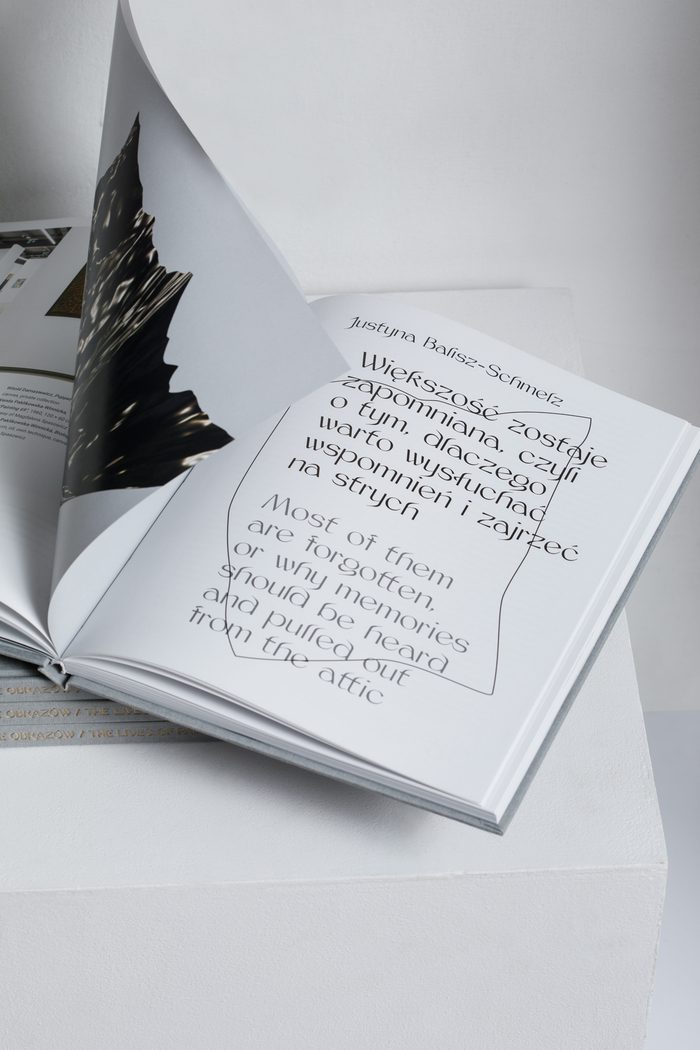 Justyna Balisz-Schmelz
Większość zostaje
zapomniana, czyli
o tym, dlaczego
warto wysłuchać
wspomnień i zajrzeć
na strych
Most of them
are forgotten,
or why memories
should be heard
and pulled out
from the attic
OBRAZÓW / THE LIVES OF
OBRAZÓW / THE LIVES OF
OBRAZÓW / THE LIVES OF